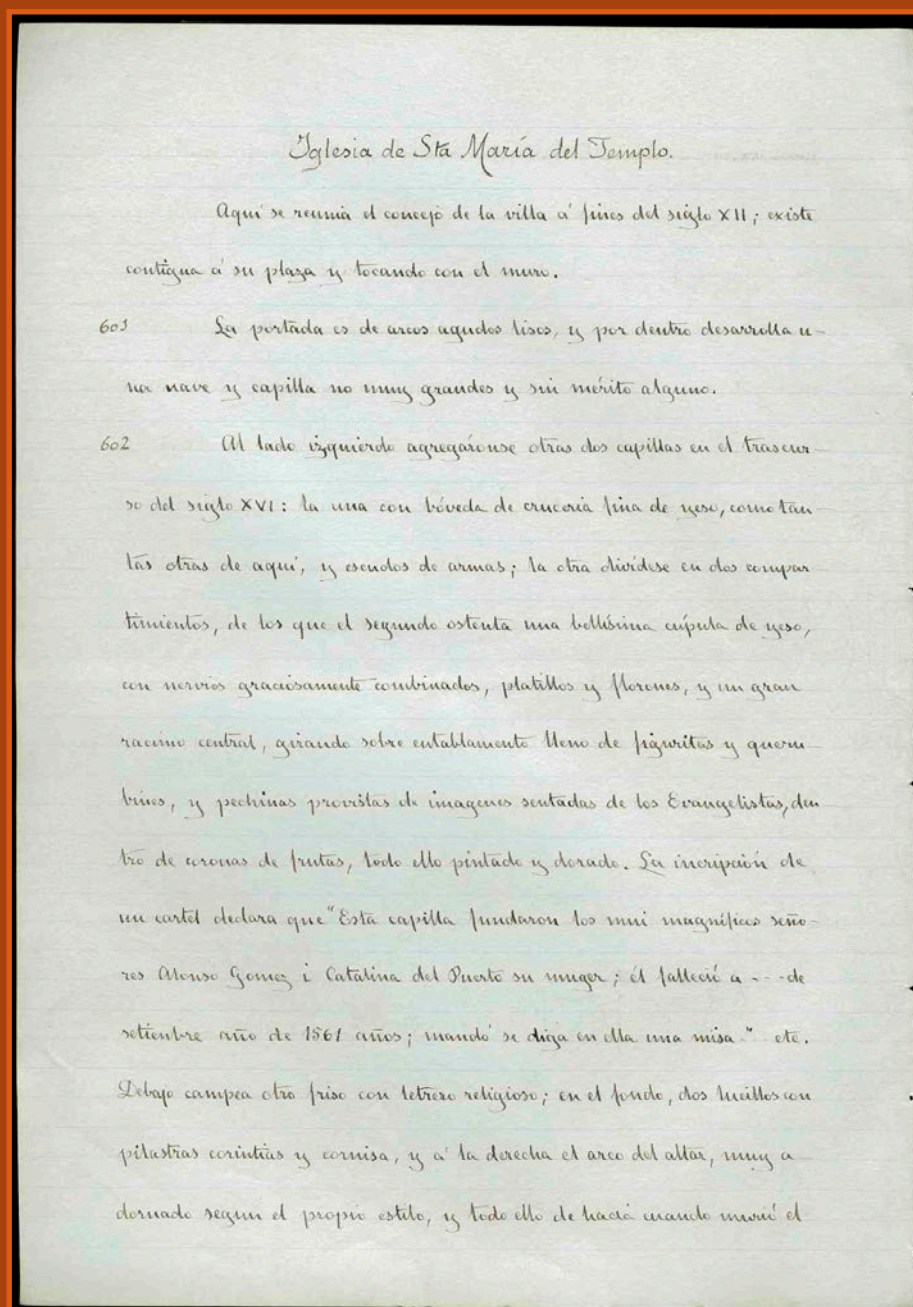 Iglesia de Sta María del Templo.
Aquí se reunía el concejo de la villa á fines del siglo XII; existe
contigua á su plaza y tocando con el muro.
601 La portada es de arcos agudos lisos, y por dentro desarrolla u-
na nave y capilla no muy grandes y sin mérito alguno.
602 Al lado izquierdo agregáronse otras dos capillas en el trascur-
so del siglo XVI: la una con bóveda de crucería fina de yeso, como tan-
tas otras de aquí, y escudos de armas; la otra divídese en dos compar
timientos, de los que el segundo ostenta una bellísima cúpula de yeso,
con nervios graciosamente combinados, platillos y florones, y un gran
racimo central, girando sobre entablamento lleno de figuritas y queru-
bines, y pechinas provistas de imagenes sentadas de los Evangelistas, den
tro de coronas de frutas, todo ello pintado y dorado. La incripción de
un cartel declara que "Esta capilla fundaron los mui magníficos seño-
res Alonso Gomez i Catalina del Puerto su muger; él falleció a --- de
setienbre año de 1561 años; mandó se diga en ella una misa" etc.
Debajo campea otro friso con letrero religioso; en el fondo, dos lucillos con
pilastras corintias y cornisa, y á la derecha el arco del altar, muy a-
dornado segun el propio estilo, y todo ello de hacia cuando murió el